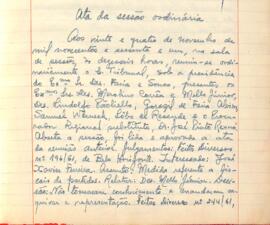 Ata da sessão ordinária
Aos vinte e quatro de novembro de
mil novecentos e sessenta e um, na sala
de sessões, às dezesseis horas, reuniu-se ordi-
nàriamente o Tribunal, sob a presidência
do Exmo Sr. Des. Faria e Sousa, presentes, os
Exmos Srs. Des. Mello Júnior,
drs. Lindolfo Paoliello, de Faria Alvim,
Samuel Werneck, Edésio de Rezende e o Procu-
rador Regional substituto, Dr. José Pinto Renno.
Aberta a sessão, foi lida e aprovada a ata da
reunião anterior. Julgamentos: Feitos diversos
nº 196/61, de Belo Horizonte. Interessado: José
Xavier Ferreira. Assunto: Medida referente a fis-
cais de partidos. Relator: Des. Mello Júnior. Deci-
são: Não tomaram conhecimento e mandaram ar-
quivar a representação. Feitos diversos nº 244/61,